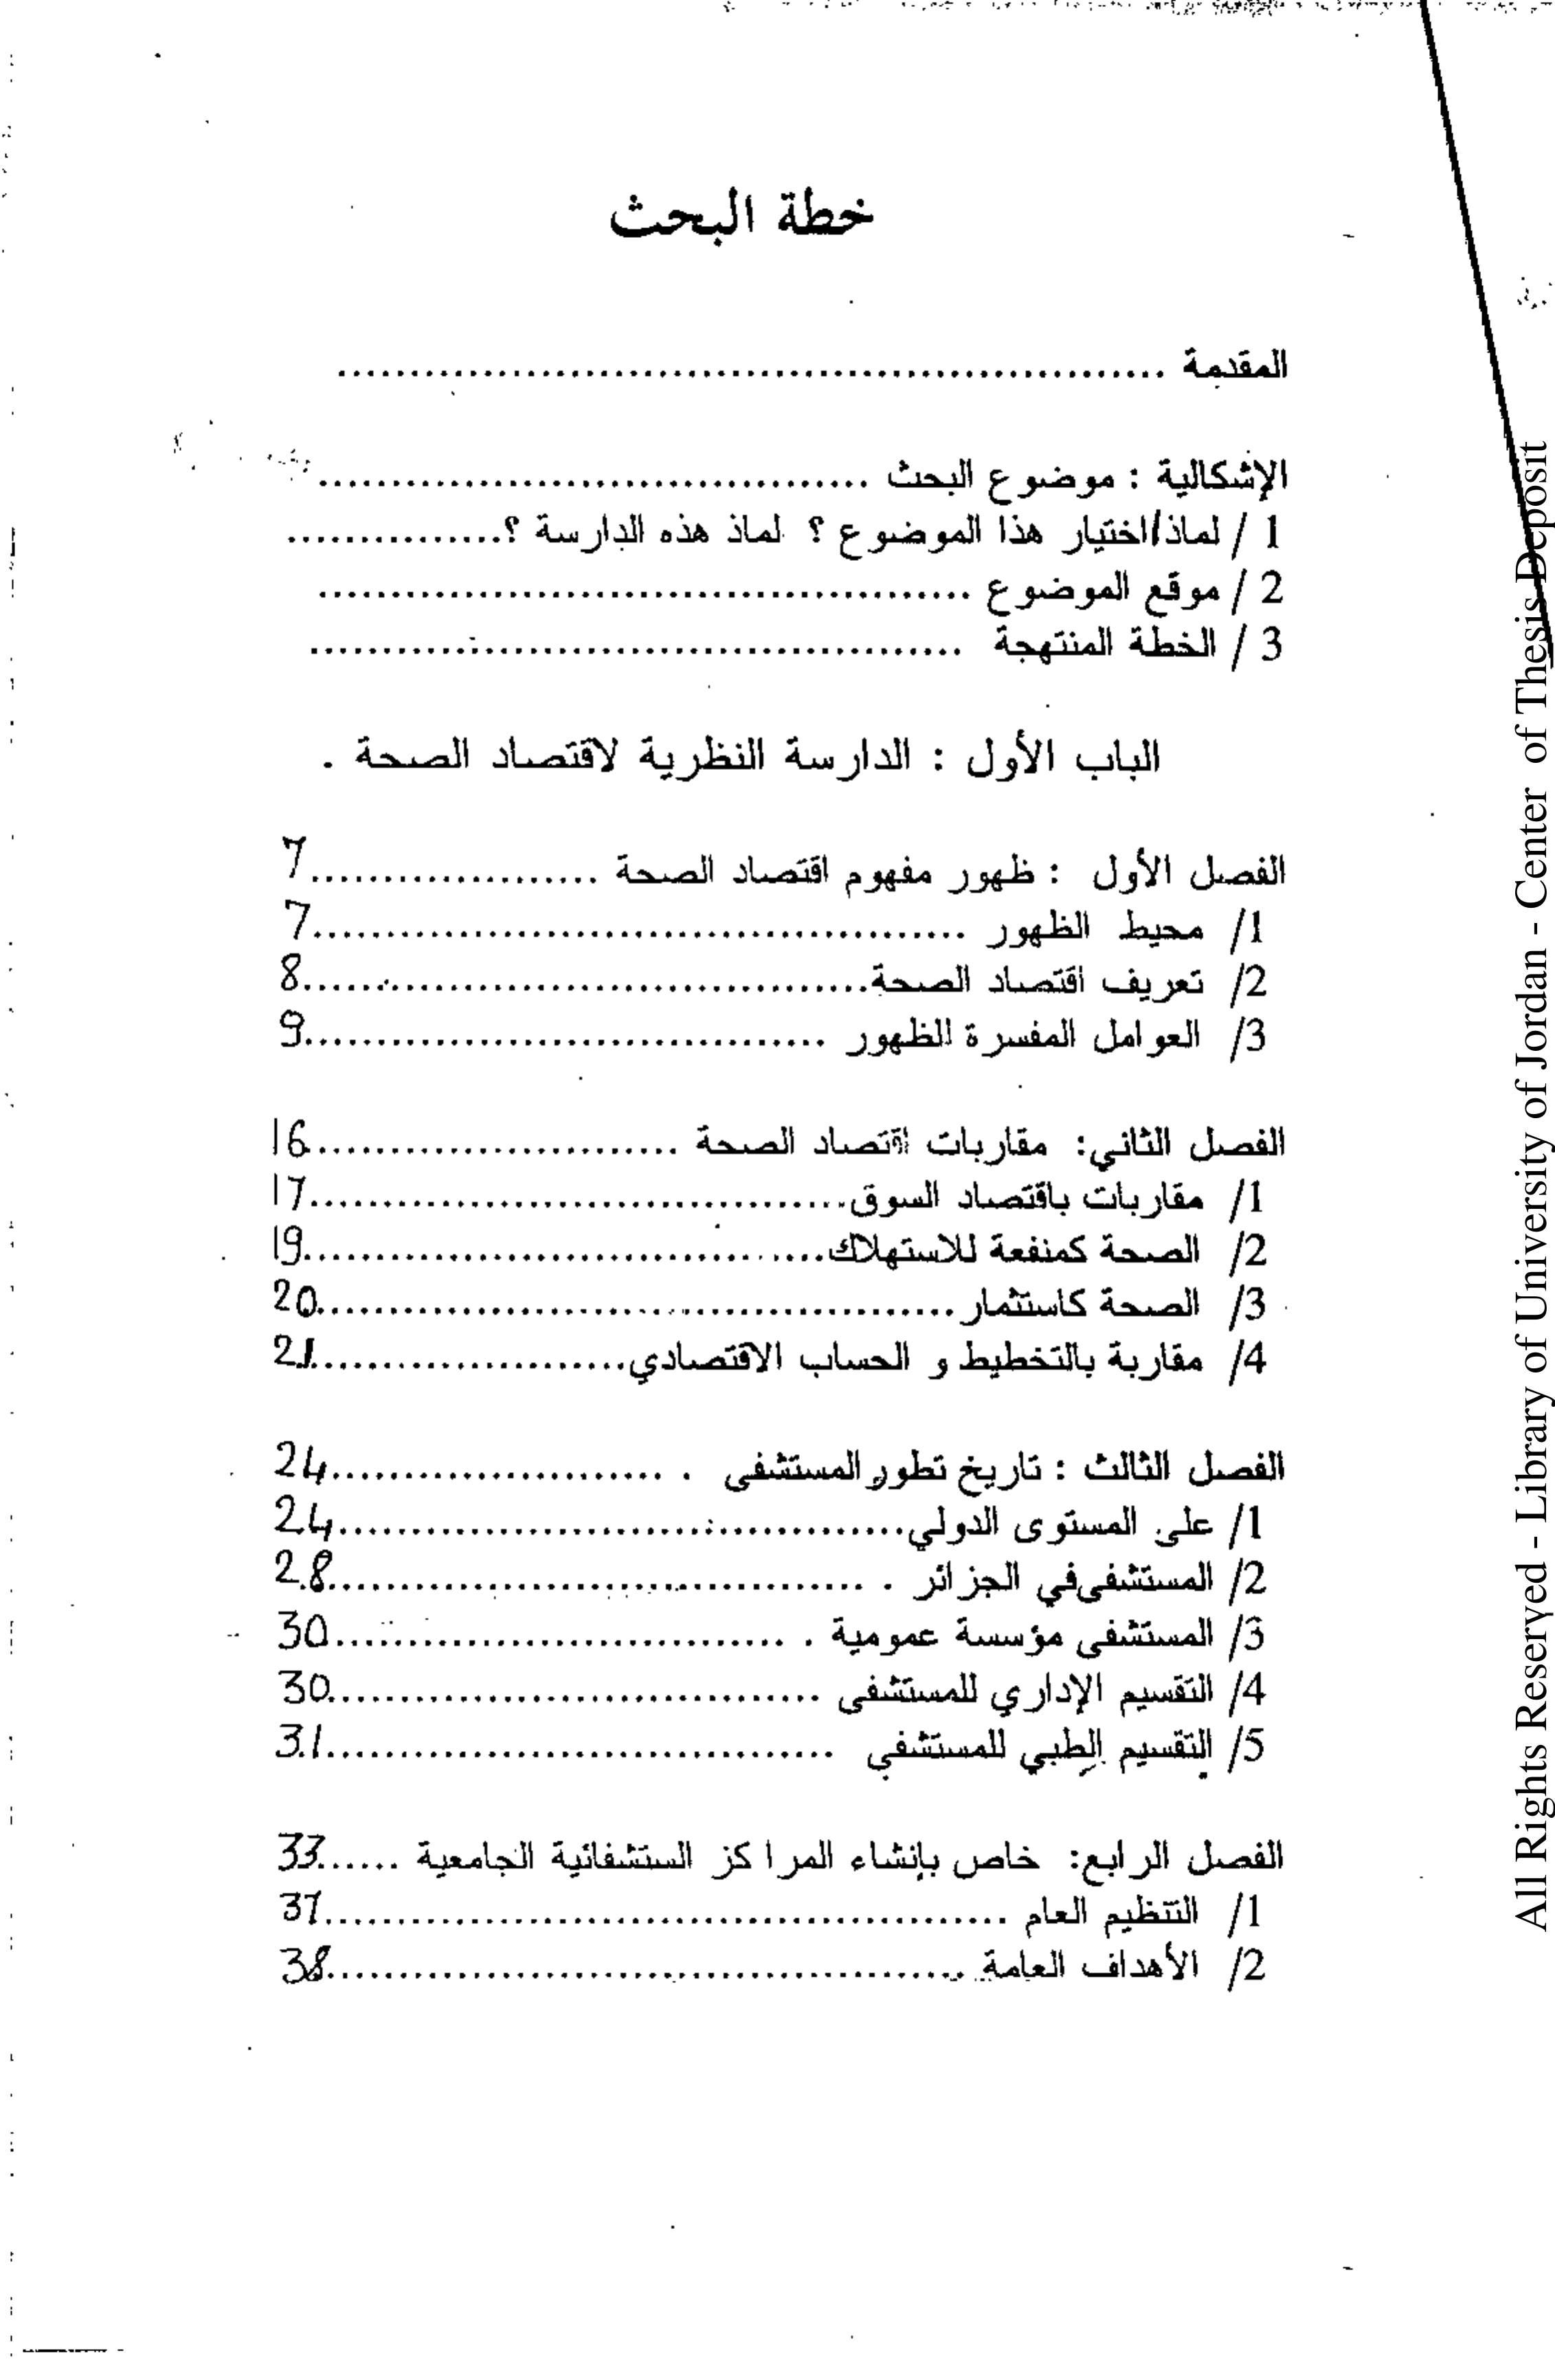 خطة البحث
المقدمة ..........................................................
الإشكالية : موضوع البحث ......................................
1 / لماذا/اختيار هذا الموضوع ؟ لماذ هذه الدارسة ؟...............
2 / موقع الموضوع .............................................
3 / الخطة المنتهجة .............................................
الباب الأول : الدارسة النظرية لاقتصاد الصحة .
الفصل الأول : ظهور مفهوم اقتصاد الصحة ....................7
1/ محيط الظهور .............................................7
2/ تعريف اقتصاد الصحة.......................................8
3/ العوامل المفسرة للظهور ....................................9
الفصل الثاني: مقاربات اقتصاد الصحة .........................16
1/ مقاربات باقتصاد السوق.....................................17
2/ الصحة كمنفعة للاستهلاك....................................19
3/ الصحة كاستثمار............................................20
4/ مقاربة بالتخطيط و الحساب الاقتصادي......................21
الفصل الثالث : تاريخ تطور المستشفى . .......................24
1/ على المستوى الدولي.......................................24
2/ المستشفى في الجزائر . .....................................28
3/ المستشفى مؤسسة عمومية . ...............................30
4/ التقسيم الإداري للمستشفى ..................................30
5/ التقسيم الطبي للمستشفي ...................................31
الفصل الرابع: خاص بإنشاء المراكز الستشفائية الجامعية ......33
1/ التنظيم العام ...............................................37
2/ الأهداف العامة ............................................38
All Rights Reserved - Library of University of Jordan - Center of Thesis Deposit